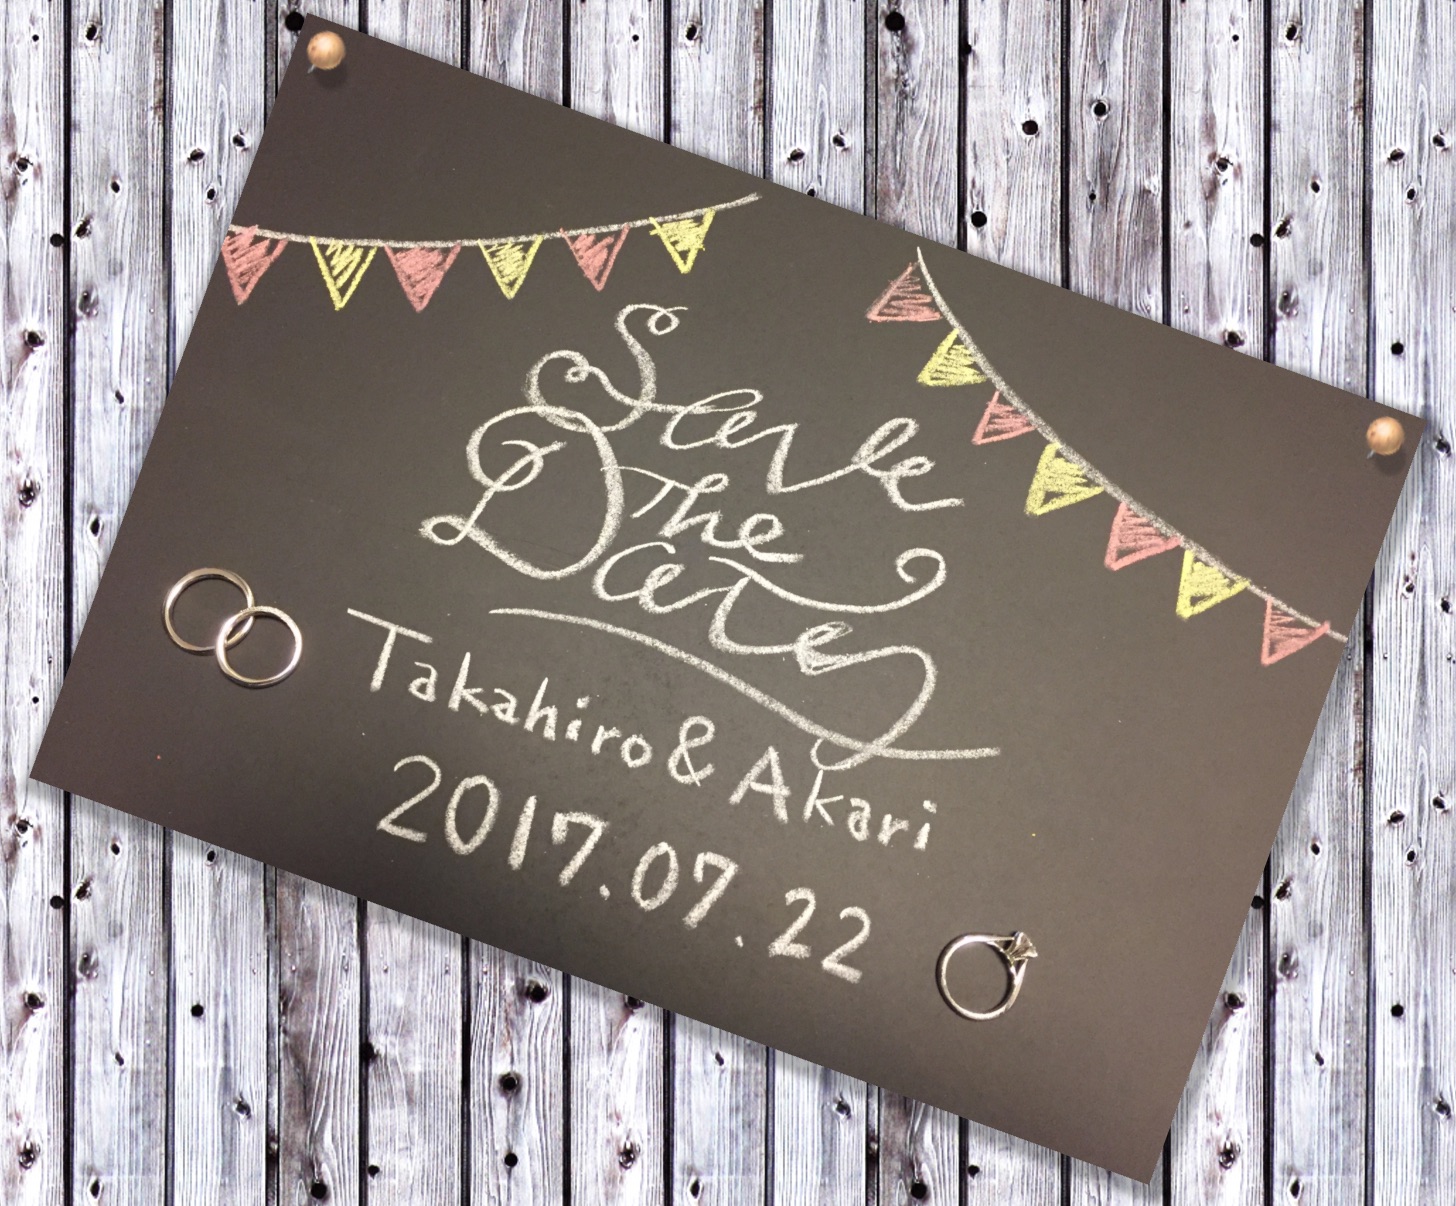 Save
The
Date
Takahiro & Akari
2017.07.22